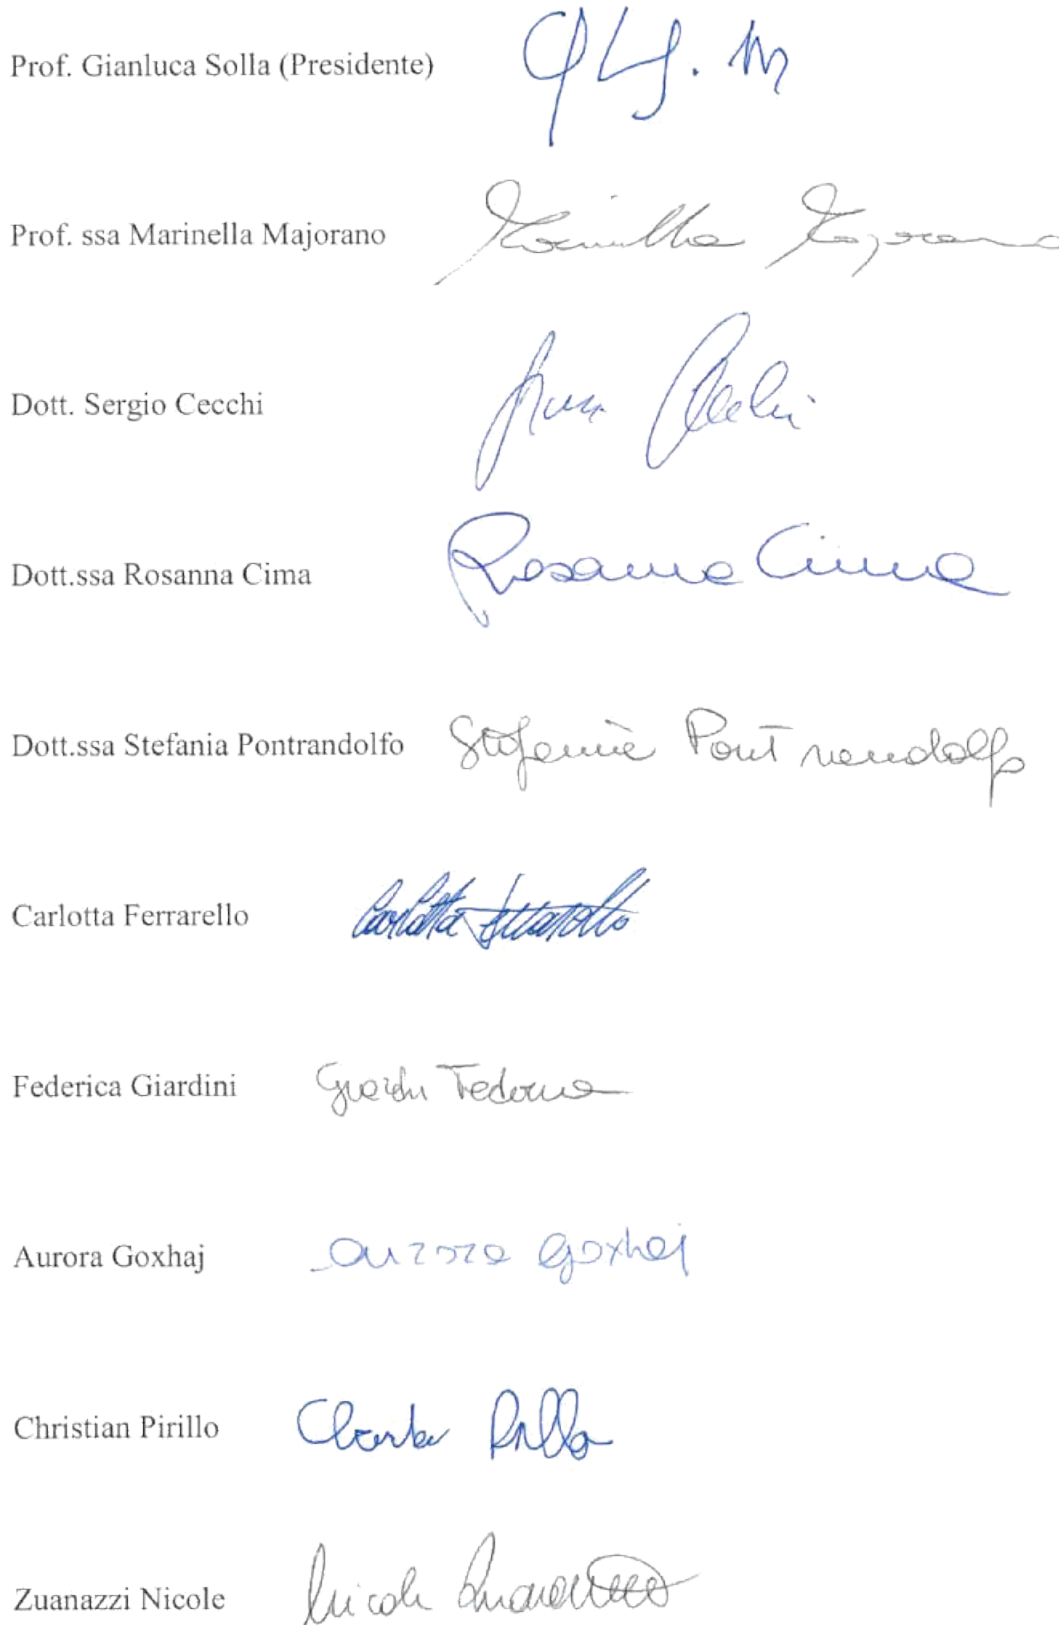 Prof. Gianluca Solla (Presidente)
Prof. ssa Marinella Majorano Marinella Majorano
Dott. Sergio Cecchi
Dott.ssa Rosanna Cima Rosanna Cima
Dott.ssa Stefania Pontrandolfo Stefania Pontrandolfo
Carlotta Ferrarello Carlotta Ferrarello
Federica Giardini Giardini Federica
Aurora Goxhaj aurora goxhaj
Christian Pirillo Christian Pirillo
Zuanazzi Nicole Nicole Zuanazzi